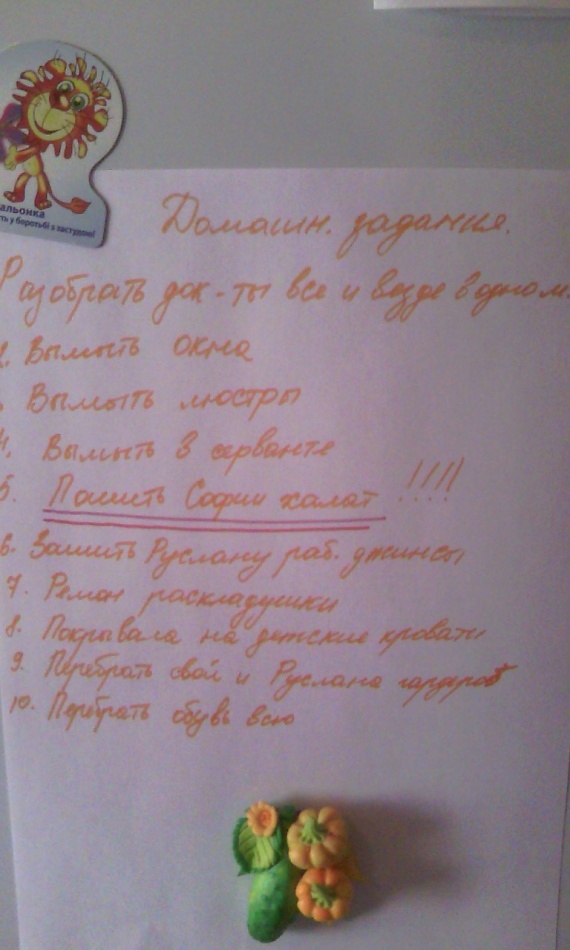 альонка
ть у боротьбі з застудою!
Домашн. задания.
Разобрать док-ты все и везде в одном.
2. Вымыть окна
Вымыть люстры
4. Вымыть в серванте
5. Пошить Софии халат !!!!
6. Зашить Руслану раб. джинсы
7. Ремон раскладушки
8. Покрывала на детские кровати
9. Перебрать свой и Руслана гардероб
10. Перебрать обувь всю